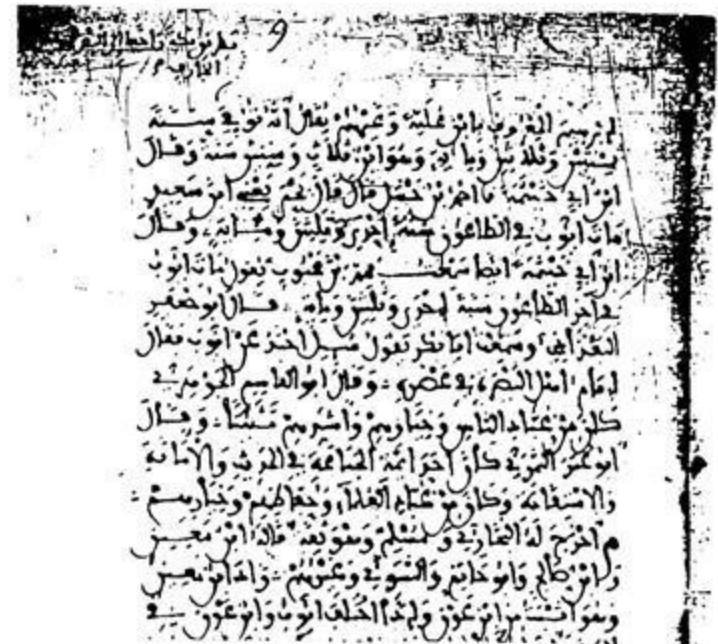 ابرهيم المعروف بابن علية وغيرهم يقال انه توفي سنة
وثلاثين ومائة وهو ابن ثلاث وستين سنة وقال
ابن ابي خيثمة نا احمد بن حنبل قال قال يحيى ابن سعيد
مات ايوب في الطاعون سنة احدى وثلثين ومائة وقال
ابن ابي خيثمة ايضا سمعت يقول مات ايوب
في اخر الطاعون سنة احدى وثلثين ومائة قال ابو جعفر
سمعت ابا بكر يقول سئل احمد عن ايوب فقال
امام اهل البصرة في عصره وقال ابو القاسم في
كان من عباد الناس وخيارهم واشدهم وقال
ابو عمر النمري كان احد ائمة الجماعة في الحديث والامانة
والاستقامة وكان من عباد العلماء وحفاظهم وخيارهم
اخرج له البخاري ومسلم وهو ثقة قاله ابن معين
وابن صالح وابو حاتم والنسوي وغيرهم زاد ابن معين
وهو اثبت من ابن عون واذا اختلف ايوب وابن عون في